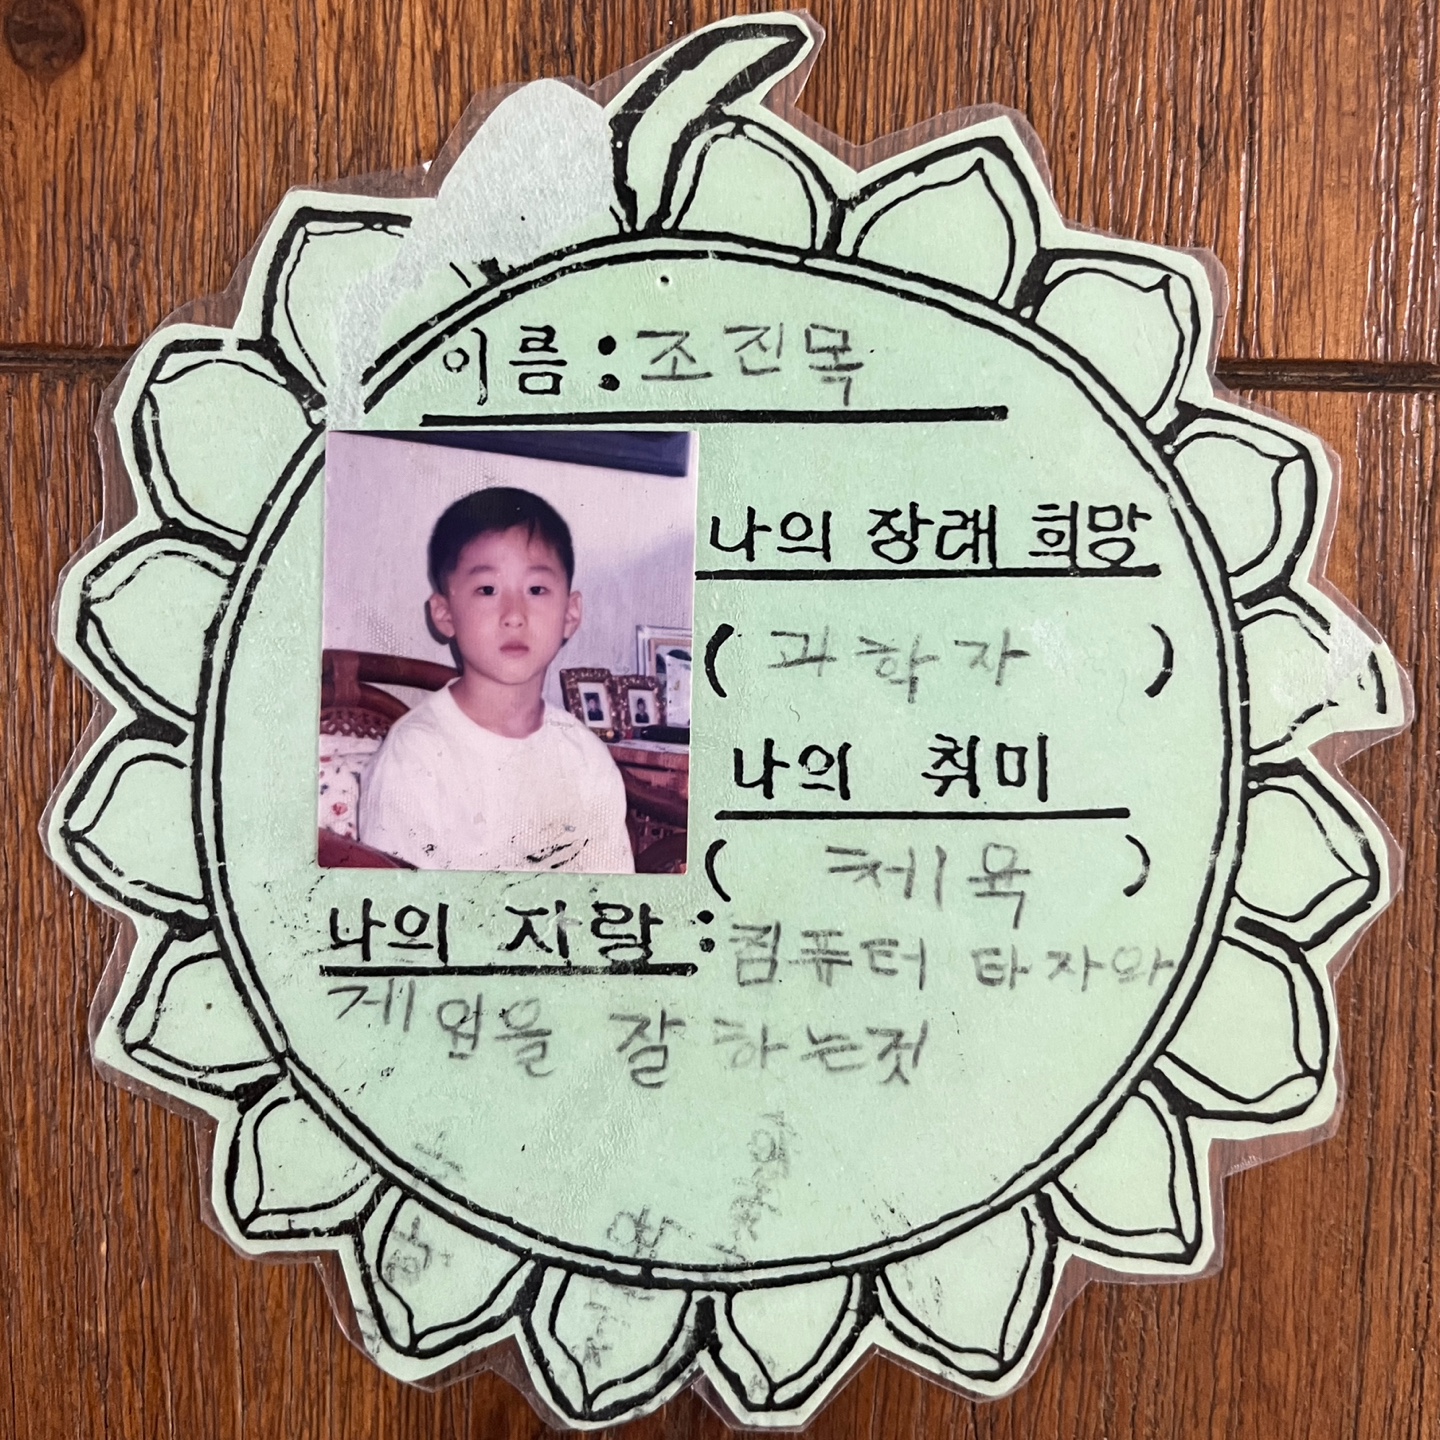 이름 : 조진목
나의 장래 희망
( 과학자 )
나의 취미
( 체육 )
나의 자랑 : 컴퓨터 타자와
게임을 잘 하는것